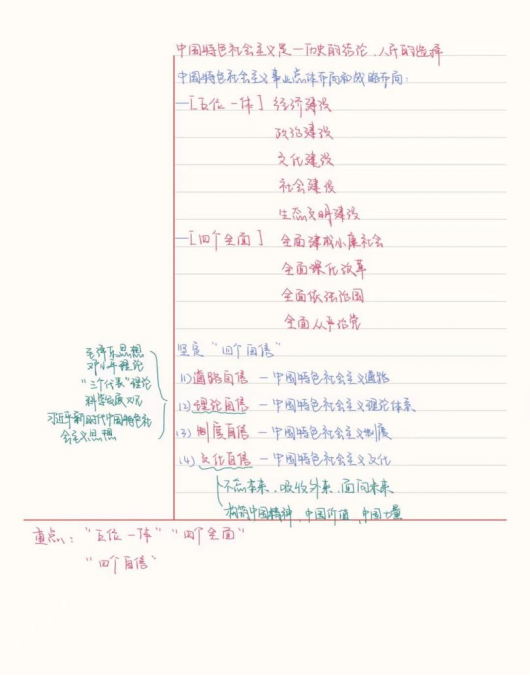 中国特色社会主义是一历史的结论、人民的选择
中国特色社会主义事业总体布局和战略布局:
—[五位一体] 经济建设
政治建设
文化建设
社会建设
生态文明建设
—[四个全面] 全面建成小康社会
全面深化改革
全面依法治国
全面从严治党
坚定"四个自信"
(1)道路自信 — 中国特色社会主义道路
(2)理论自信 — 中国特色社会主义理论体系
(3)制度自信 — 中国特色社会主义制度
(4)文化自信 — 中国特色社会主义文化
不忘本来、吸收外来、面向未来
构筑中国精神、中国价值、中国力量
毛泽东思想
邓小平理论
"三个代表"理论
科学发展观
习近平新时代中国特色社
会主义思想
重点:"五位一体""四个全面"
"四个自信"